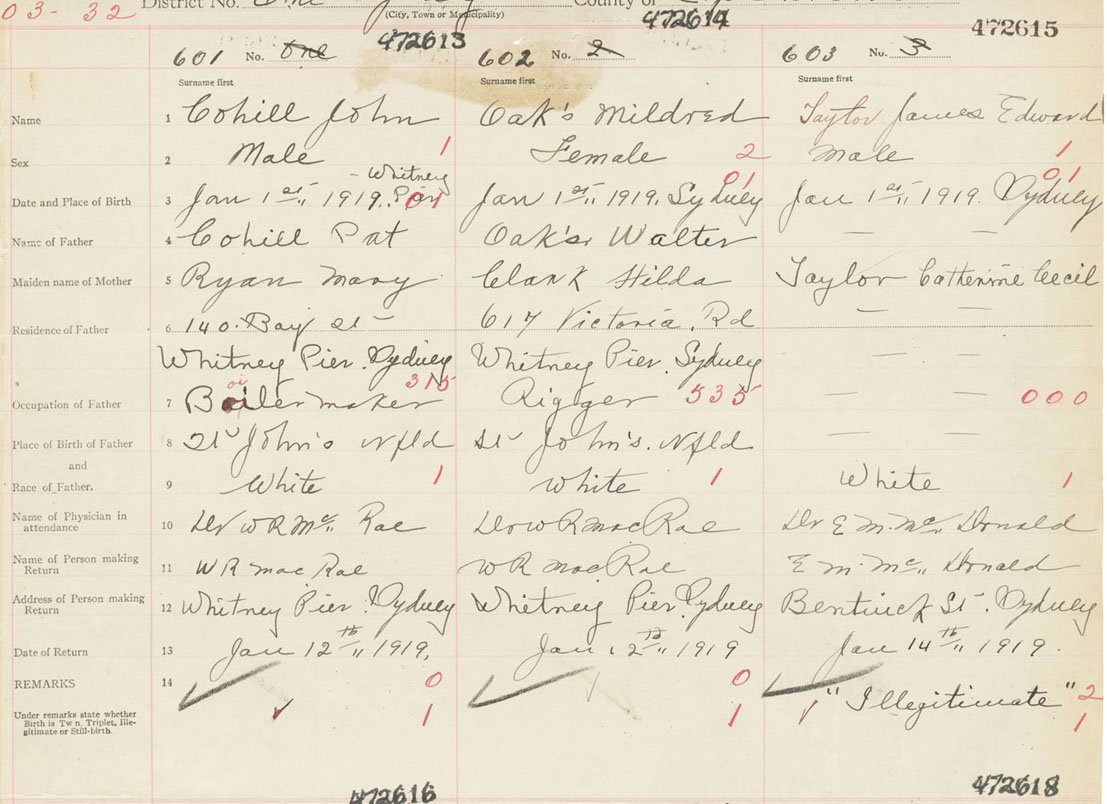 03-32 District No. (City, Town or Municipality) County of
472613 472614 472615
601 No. One 602 No. 2 603 No. 3
Surname first Surname first Surname first
Name 1 Cohill John Oak's Mildred Taylor James Edward
Sex 2 Male 1 Female 2 Male 1
Whitney 01 01
Date and Place of Birth 3 Jan 1st 1919. Pier 01 Jan 1st 1919. Sydney Jan 1st 1919. Sydney
Name of Father 4 Cohill Pat Oak's Walter — —
Maiden name of Mother 5 Ryan Mary Clark Hilda Taylor Catherine Cecil
Residence of Father 6 140. Bay St 617 Victoria. Rd — —
Whitney Pier. Sydney Whitney Pier. Sydney — —
oi 315
Occupation of Father 7 Boilermaker Rigger 535 — — 000
Place of Birth of Father 8 St John's Nfld St John's. Nfld — —
and
Race of Father. 9 White 1 White 1 White 1
Name of Physician in attendance 10 Dr W R Mc Rae Dr W R MacRae Dr E M. Mc Donald
Name of Person making Return 11 W R Mac Rae W R MacRae E M. Mc Donald
Address of Person making Return 12 Whitney Pier. Sydney Whitney Pier. Sydney Bentinck St. Sydney
Date of Return 13 Jan 12th 1919. Jan 12th 1919 Jan 14th 1919.
REMARKS 14 0 0 "Illegitimate" 2
Under remarks state whether Birth is Twin, Triplet, Illegitimate or Still-birth. 1 1 1
472616 472618